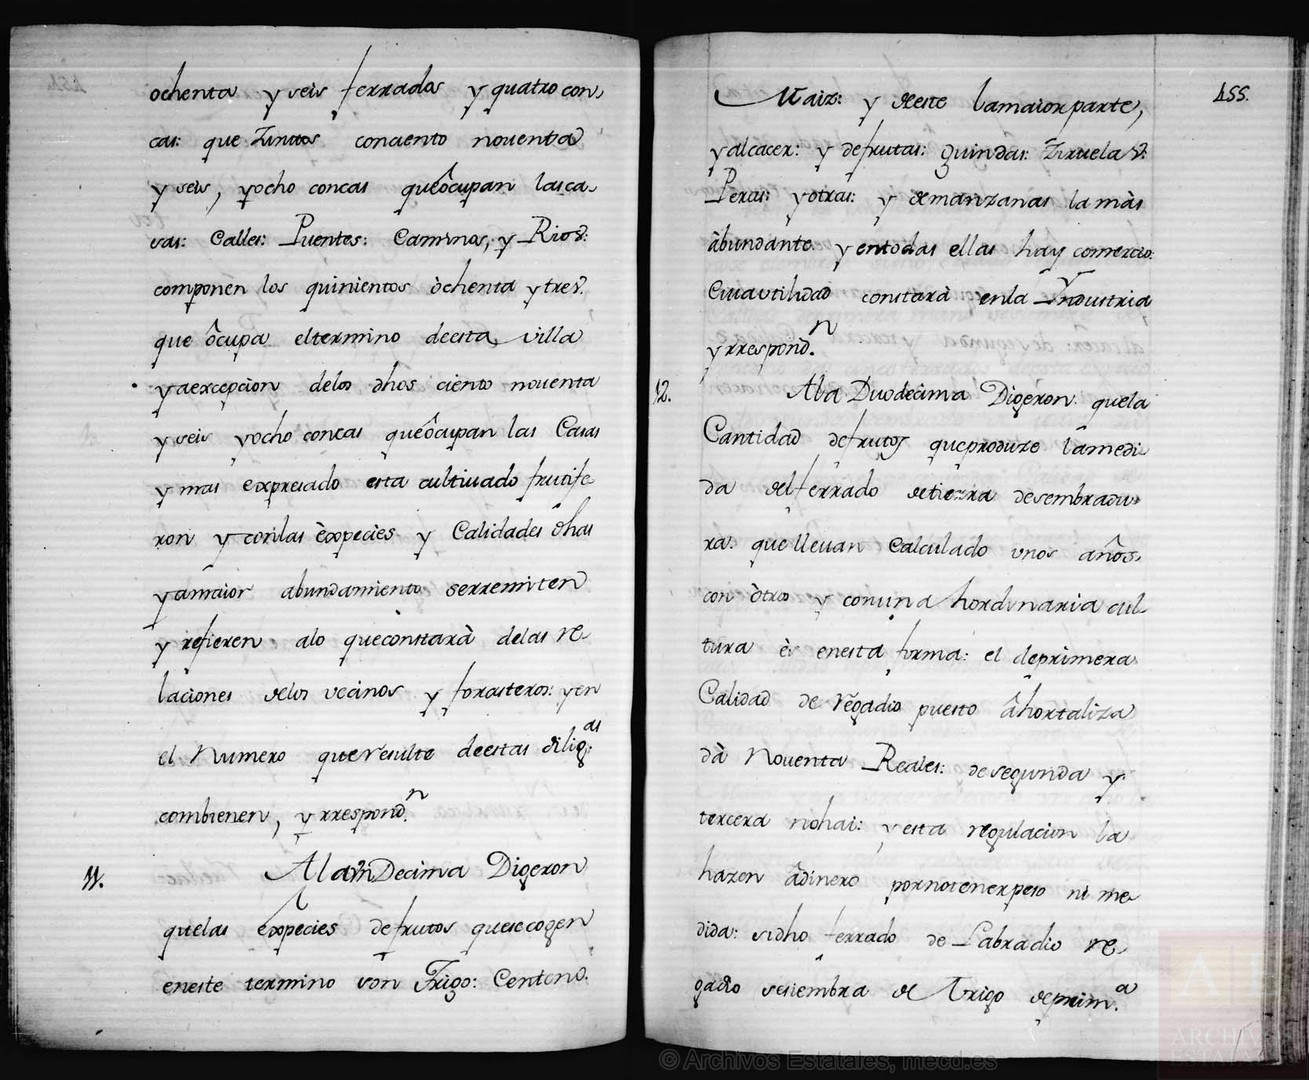 ochenta y seis ferrados y quatro con,
cas: que Juntos conciento noventa
y seis, yocho concas queôcupan lasca,
sas: Calles: Puentes: Caminos, y Rios:
componen los quinientos òchenta ytres:
que ôcupa eltermino deesta villa
yaexcepcion delos dhos ciento noventa
y seis yocho concas queôcupan las Casas
y mas expresado esta cultivado frutife
ron y conlas èxpecies y Calidades dhas
yamaior abundamiento serremiten
y refieren alo queconstarà delas re
laciones delos vecinos y forasteros: yen
el Numero queresulte deestas dilig.as
combienen, y rrespond.n
11. Ala Decima Digeron
quelas expecies defrutos quesecogen
eneste termino son Trigo: Centeno:
455.
Maiz: y deeste lamaiorparte,
yalcacer: y defrutas: Guindas: Ziruelas:
Peras: yotras: y demanzanas la màs
àbundante yentodas ellas hay comercio
Cuiautilidad constarà enla Yndustria
yrrespond.n
12. Ala Duodecima Digeron quela
Cantidad defrutos queproduze lamedi
da delferrado detierra desembradu,
ra: que llevan Calculado unos años
con òtros y conuna hordinaria cul
tura ès enesta forma: el deprimera
Calidad de regadio puesto âhortaliza
dà Noventa Reales: desegunda y
tercera nohai: yesta regulacion la
hazen âdinero pornotenerpeso ni me
dida: sidho ferrado de Labradio re,
gadio sesiembra de Trigo deprim.a
© Archivos Estatales, mecd.es